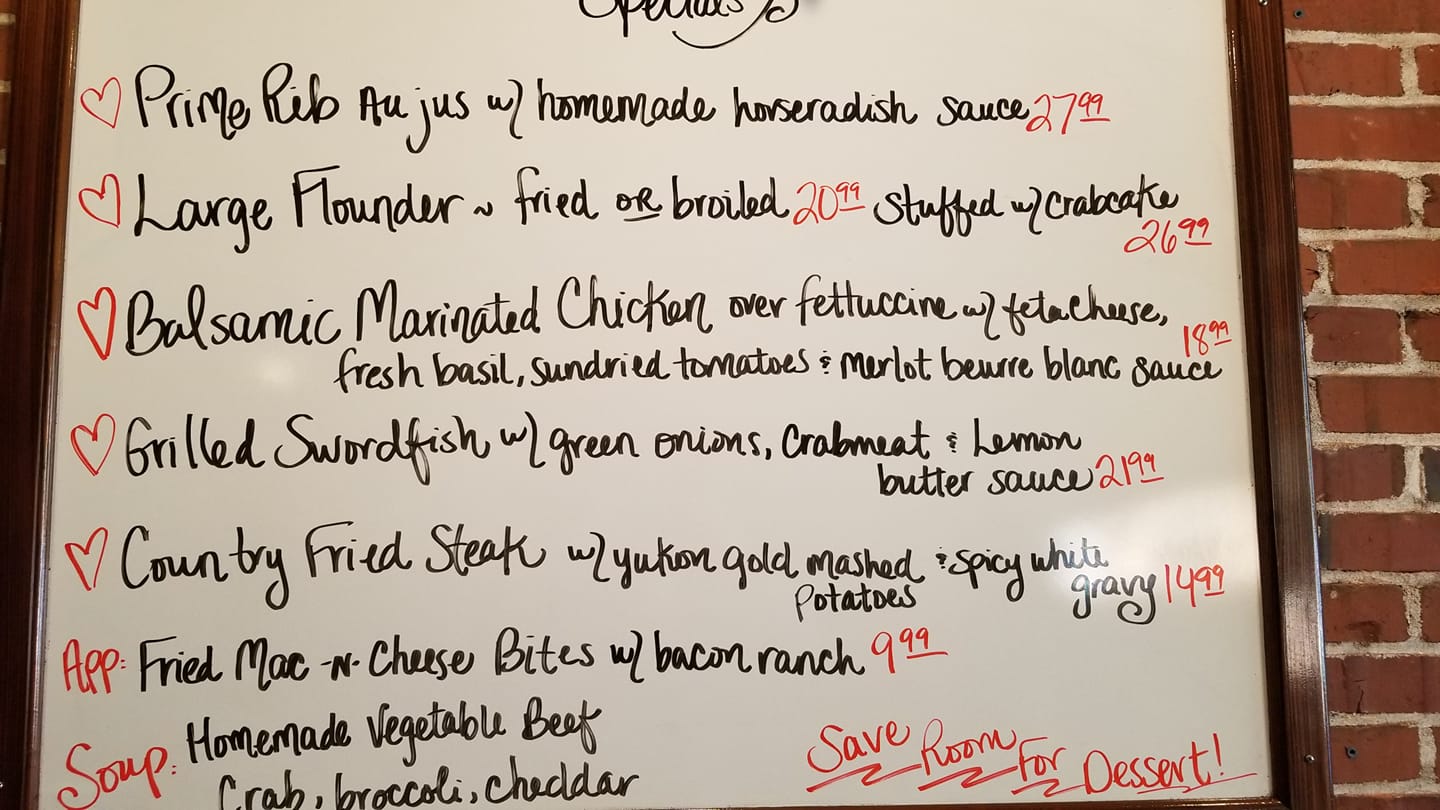 Specials
Prime Rib Au jus w/ homemade horseradish sauce 27.99
Large Flounder ~ fried OR broiled 20.99 stuffed w/ crabcake
26.99
Balsamic Marinated Chicken over fettuccine w/ feta cheese,
18.99
fresh basil, sundried tomatoes & merlot beurre blanc sauce
Grilled Swordfish w/ green onions, crabmeat & Lemon
butter sauce 21.99
Country Fried Steak w/ yukon gold mashed & spicy white
potatoes gravy 14.99
App: Fried Mac -N- Cheese Bites w/ bacon ranch 9.99
Soup: Homemade Vegetable Beef
Crab, broccoli, cheddar
Save Room For Dessert!